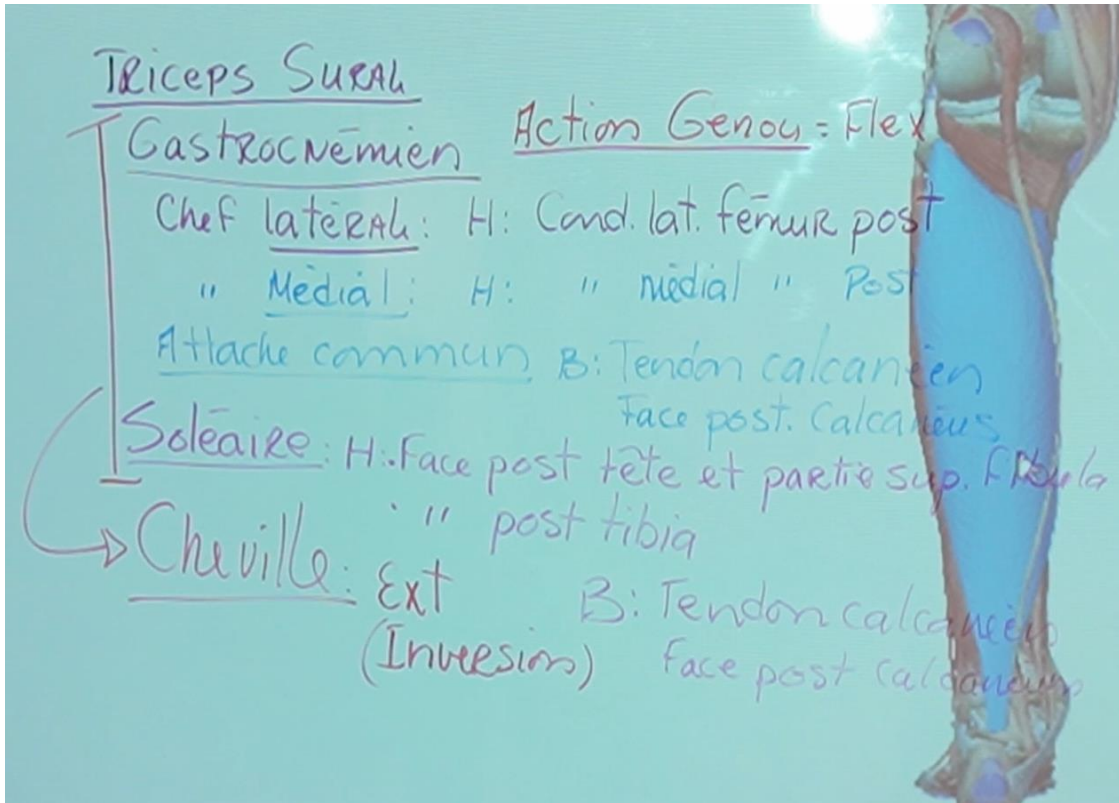 TRiceps SURAL
GastRocNémien Action Genou = Flex
Chef latéRAL : H: Cond. lat. fémuR post
" Médial : H: " médial " Post
Attache commun B: Tendon calcanéen
Face post. Calcanéus
SoléaiRe : H: Face post tête et partie sup. Fibula
" post tibia
Cheville : Ext
(Inversion)
B: Tendon calcanéen
Face post calcanéus